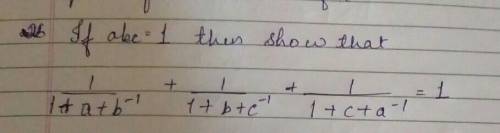 26 If abc = 1 then show that
1/(1+a+b⁻¹) + 1/(1+b+c⁻¹) + 1/(1+c+a⁻¹) = 1